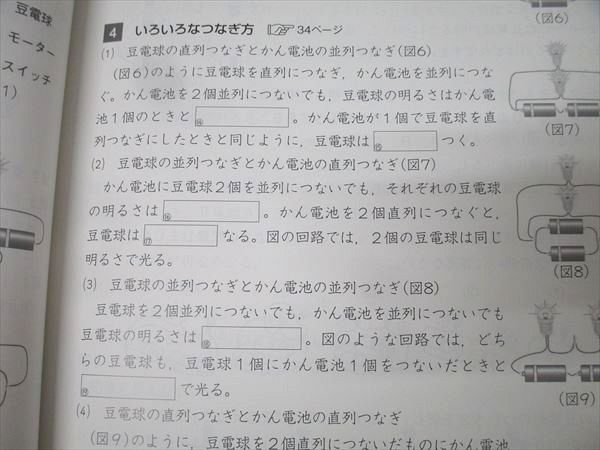 豆電球
モーター
スイッチ
1)
4 いろいろなつなぎ方 ☞34ページ
(1) 豆電球の直列つなぎとかん電池の並列つなぎ(図6)
(図6)のように豆電球を直列につなぎ，かん電池を並列につな
ぐ。かん電池を2個並列につないでも，豆電球の明るさはかん電
池1個のときと⑭。かん電池が1個で豆電球を直
列つなぎにしたときと同じように，豆電球は⑮つく。
(2) 豆電球の並列つなぎとかん電池の直列つなぎ(図7)
かん電池に豆電球2個を並列につないでも，それぞれの豆電球
の明るさは⑯。かん電池を2個直列につなぐと，
豆電球は⑰なる。図の回路では，2個の豆電球は同じ
明るさで光る。
(3) 豆電球の並列つなぎとかん電池の並列つなぎ(図8)
豆電球を2個並列につないでも，かん電池を並列につないでも
豆電球の明るさは⑱。図のような回路では，どち
らの豆電球も，豆電球1個にかん電池1個をつないだときと
⑲で光る。
(4) 豆電球の直列つなぎとかん電池の直列つなぎ
(図9)のように，豆電球を2個直列につないだものにかん電池
(図6)
(図7)
(図8)
(図9)